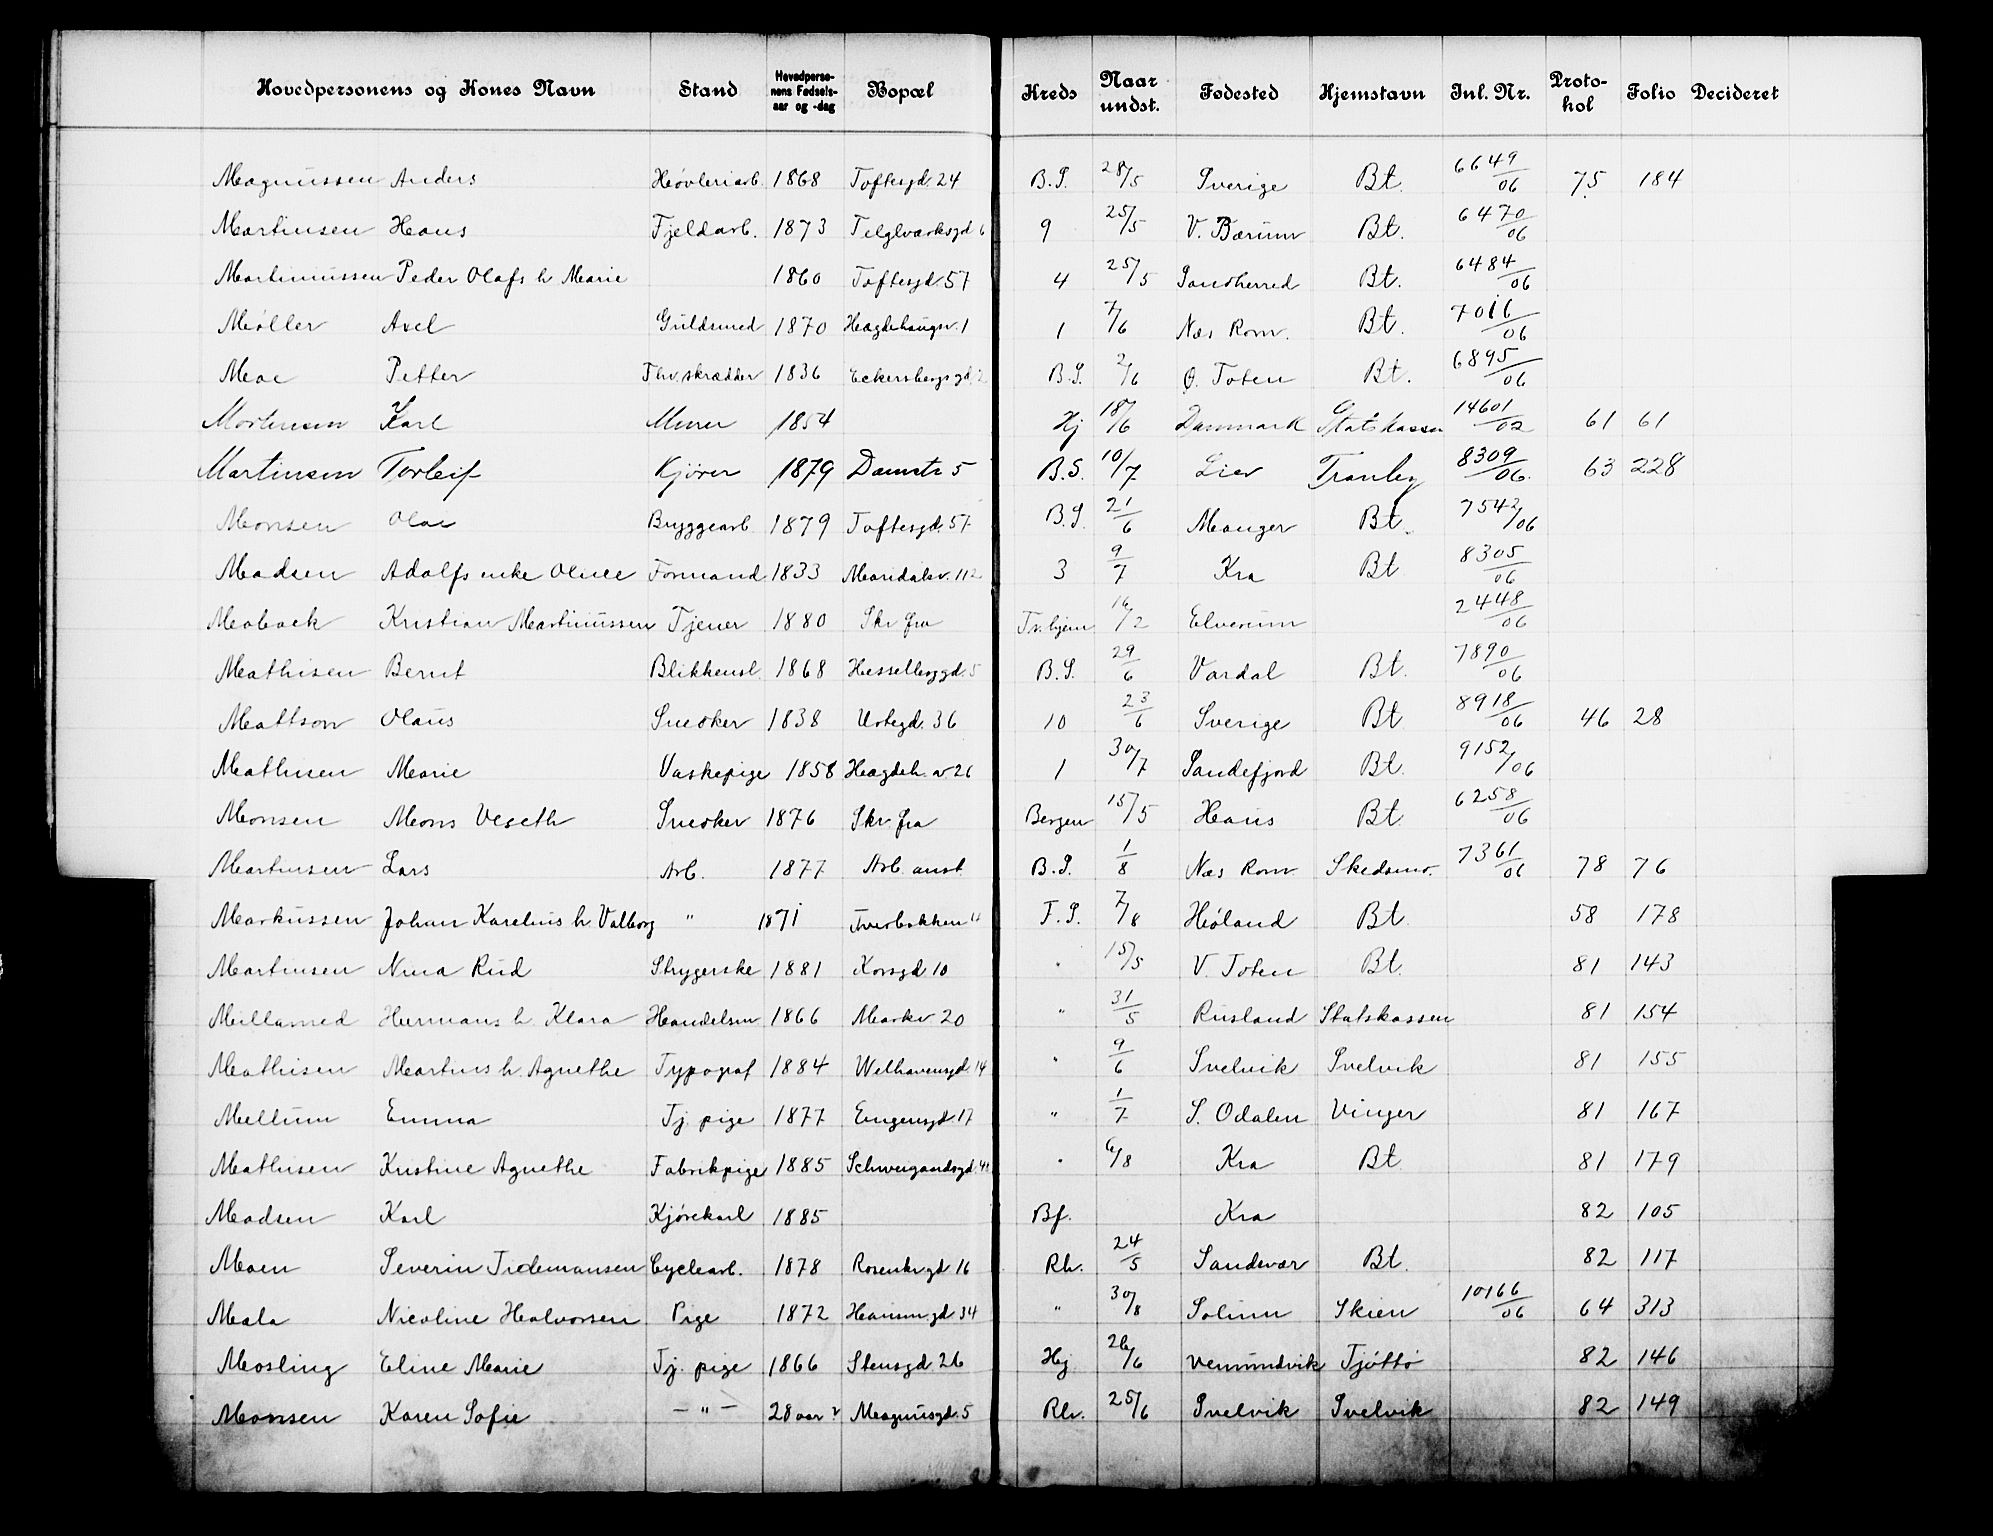 Hovedpersonens og Kones Navn Stand Hovedpersonens Fødselsaar og -dag Bopæl Kreds Naar undst. Fødested Hjemstavn Inl. Nr. Protokol Folio Decideret
Magnussen Anders Høvleriarb. 1868 Toftesgd. 24 B.S. 28/5 Sverige Bt. 6649/06 75 184
Martinsen Hans Fjeldarb. 1873 Teglværksgd 6 9 25/5 V. Bærum Bt. 6470/06
Martinussen Peder Olafs h Marie 1860 Toftesgd 57 4 25/5 Sandherred Bt. 6484/06
Møller Axel Guldsmed 1870 Hægdehaugsv. 1 1 7/6 Næs Rom. Bt. 7016/06
Moe Petter Fhv. skrædder 1836 Eckersbergs gd. 2 B.S. 2/6 Ø. Toten Bt. 6895/06
Mortensen Karl Murer 1854 Hj 18/6 Danmark Statskassen 14601/02 61 61
Martinsen Torleif Kjører 1879 Damstr 5 B.S. 10/7 Lier Tranby 8309/06. 63 228
Monsen Olai Bryggearb. 1879 Toftesgd. 57 B.S. 21/6 Manger Bt. 7542/06
Madsen Adolfs enke Oline Formand 1833 Maridalsv. 112 3 9/7 Kra Bt 8305/06
Mobæk Kristian Martinussen Tjener 1880 Skr fra Tv.hjem 16/2 Elverum 2448/06
Mathisen Bernt Blikkensl. 1868 Hesselberggd. 5 B.S. 29/6 Vardal Bt. 7890/06
Mattson Olaus Snedker 1838 Urtegd. 36 10 23/6 Sverige Bt 8918/06 46 28
Mathisen Marie Vaskepige 1858 Hægdeh. v 26 1 30/7 Sandefjord Bt. 9152/06
Monsen Mons Veseth Snedker 1876 Skr. fra Bergen 15/5 Haus Bt. 6258/06
Martinsen Lars Arb. 1877 Arb. anst. B.S. 1/8 Næs Rom. Skedsmo. 7361/06 78 76
Markussen Johan Karelius h. Valborg " 1871 Tverbakken 11 F.S. 7/8 Høland Bt. 58 178
Martinsen Nina Rud Strygerske 1881 Korsgd 10 " 15/5 V. Toten Bt. 81 143
Millamed Hermans h. Klara Handelsm 1866 Markv 20 " 31/5 Rusland Statskassen 81 154
Mathisen Martins h. Agnethe Typograf 1884 Welhavensgd. 14 " 9/6 Svelvik Svelvik 81 155
Mellum Emma Tj. pige 1877 Eugensgd. 17 " 1/7 S. Odalen Vinger 81 167
Mathisen Kristine Agnethe Fabrikpige 1885 Schweigaardsgd. " 6/8 Kra Bt. 81 179
Madsen Karl Kjørekarl 1885 Bf. Kra 82 105
Moen Severin Tidemansen Cyclearb. 1878 Rosenkr.gd 16 Rh. 24/5 Sandsvær Bt. 82 117
Mala Nicoline Halvorsen Pige 1872 Hausm. gd 34 " 30/8 Solum Skien 10166/06 64 313
Mosling Eline Marie Tj. pige 1866 Stensgd 26 Hj 26/6 Vemundvik Tjøttø 82 146
Monsen Karen Sofie — " — 28 aar? Magnusgd. 5 Rh. 25/6 Svelvik Svelvik 82 149